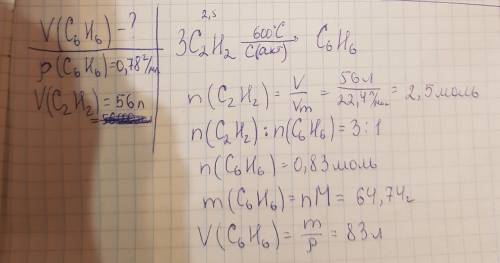 V(C₆H₆) – ?
ρ(C₆H₆)=0,78 г/мл
V(C₂H₂)=56л
2,5
3C₂H₂ 600°C C(акт) → C₆H₆
n(C₂H₂)= V/Vm = 56л/22,4 л/моль = 2,5моль
n(C₂H₂):n(C₆H₆)=3:1
n(C₆H₆)=0,83моль
m(C₆H₆)=nM= 64,74г
V(C₆H₆)= m/ρ = 83л